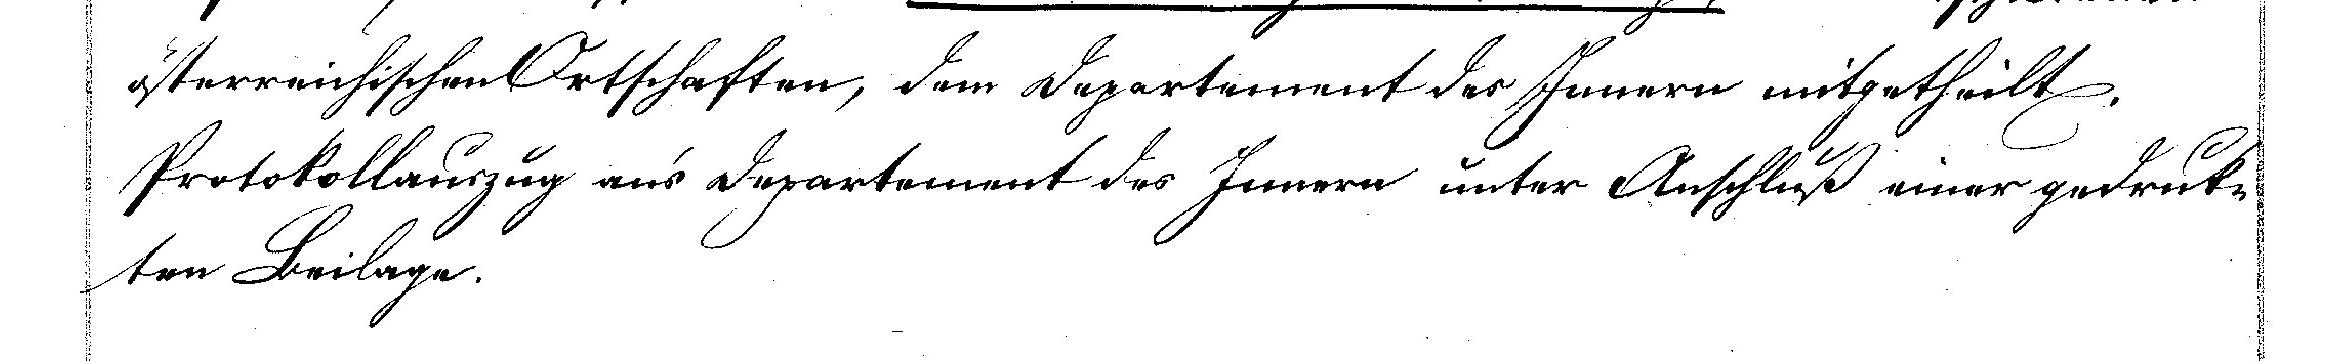 österreichischen Ortschaften, dem Departement des Innern mitgetheilt.
Protokollauszug ans Departement des Innern unter Anschluß einer gedruk-
ten Beilage.